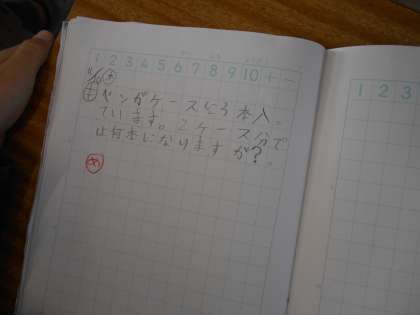 1 2 3 4 5 6 7 8 9 10 + −
1 2 3
ペンがケースに3本入っ
ています。2ケース分で
は何本になりますか?。
め